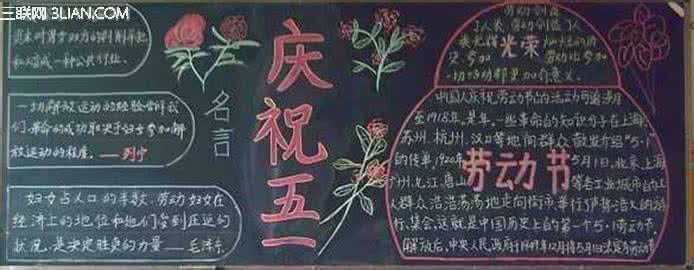 三联网 3LIAN.COM
名言
一切解放运动的经验告诉我
们,革命的成功取决于妇女参加解
放运动的程度。——列宁
妇女占人口的半数,劳动妇女在
经济上的地位和她们受到压迫的
状况,是决定胜负的力量——毛泽东
庆祝五一
劳动创造
了人类,劳动创造了人
光荣
一切活动都更加有意义。
中国人庆祝劳动节的活动可追溯
至1918年,是年,一些革命的知识分子在上海
苏州、杭州、汉口等地向群众散发介绍"5·1"
的传单,1920年5月1日,北京、上海
广州、九江、唐山等各工业城市的工
劳动节
人群众浩浩荡荡地走向街市,举行了声势浩大的游
行、集会,这就是中国历史上的第一个5·1劳动节,
解放后,中央人民政府于1949年12月将5月1日定为劳动节